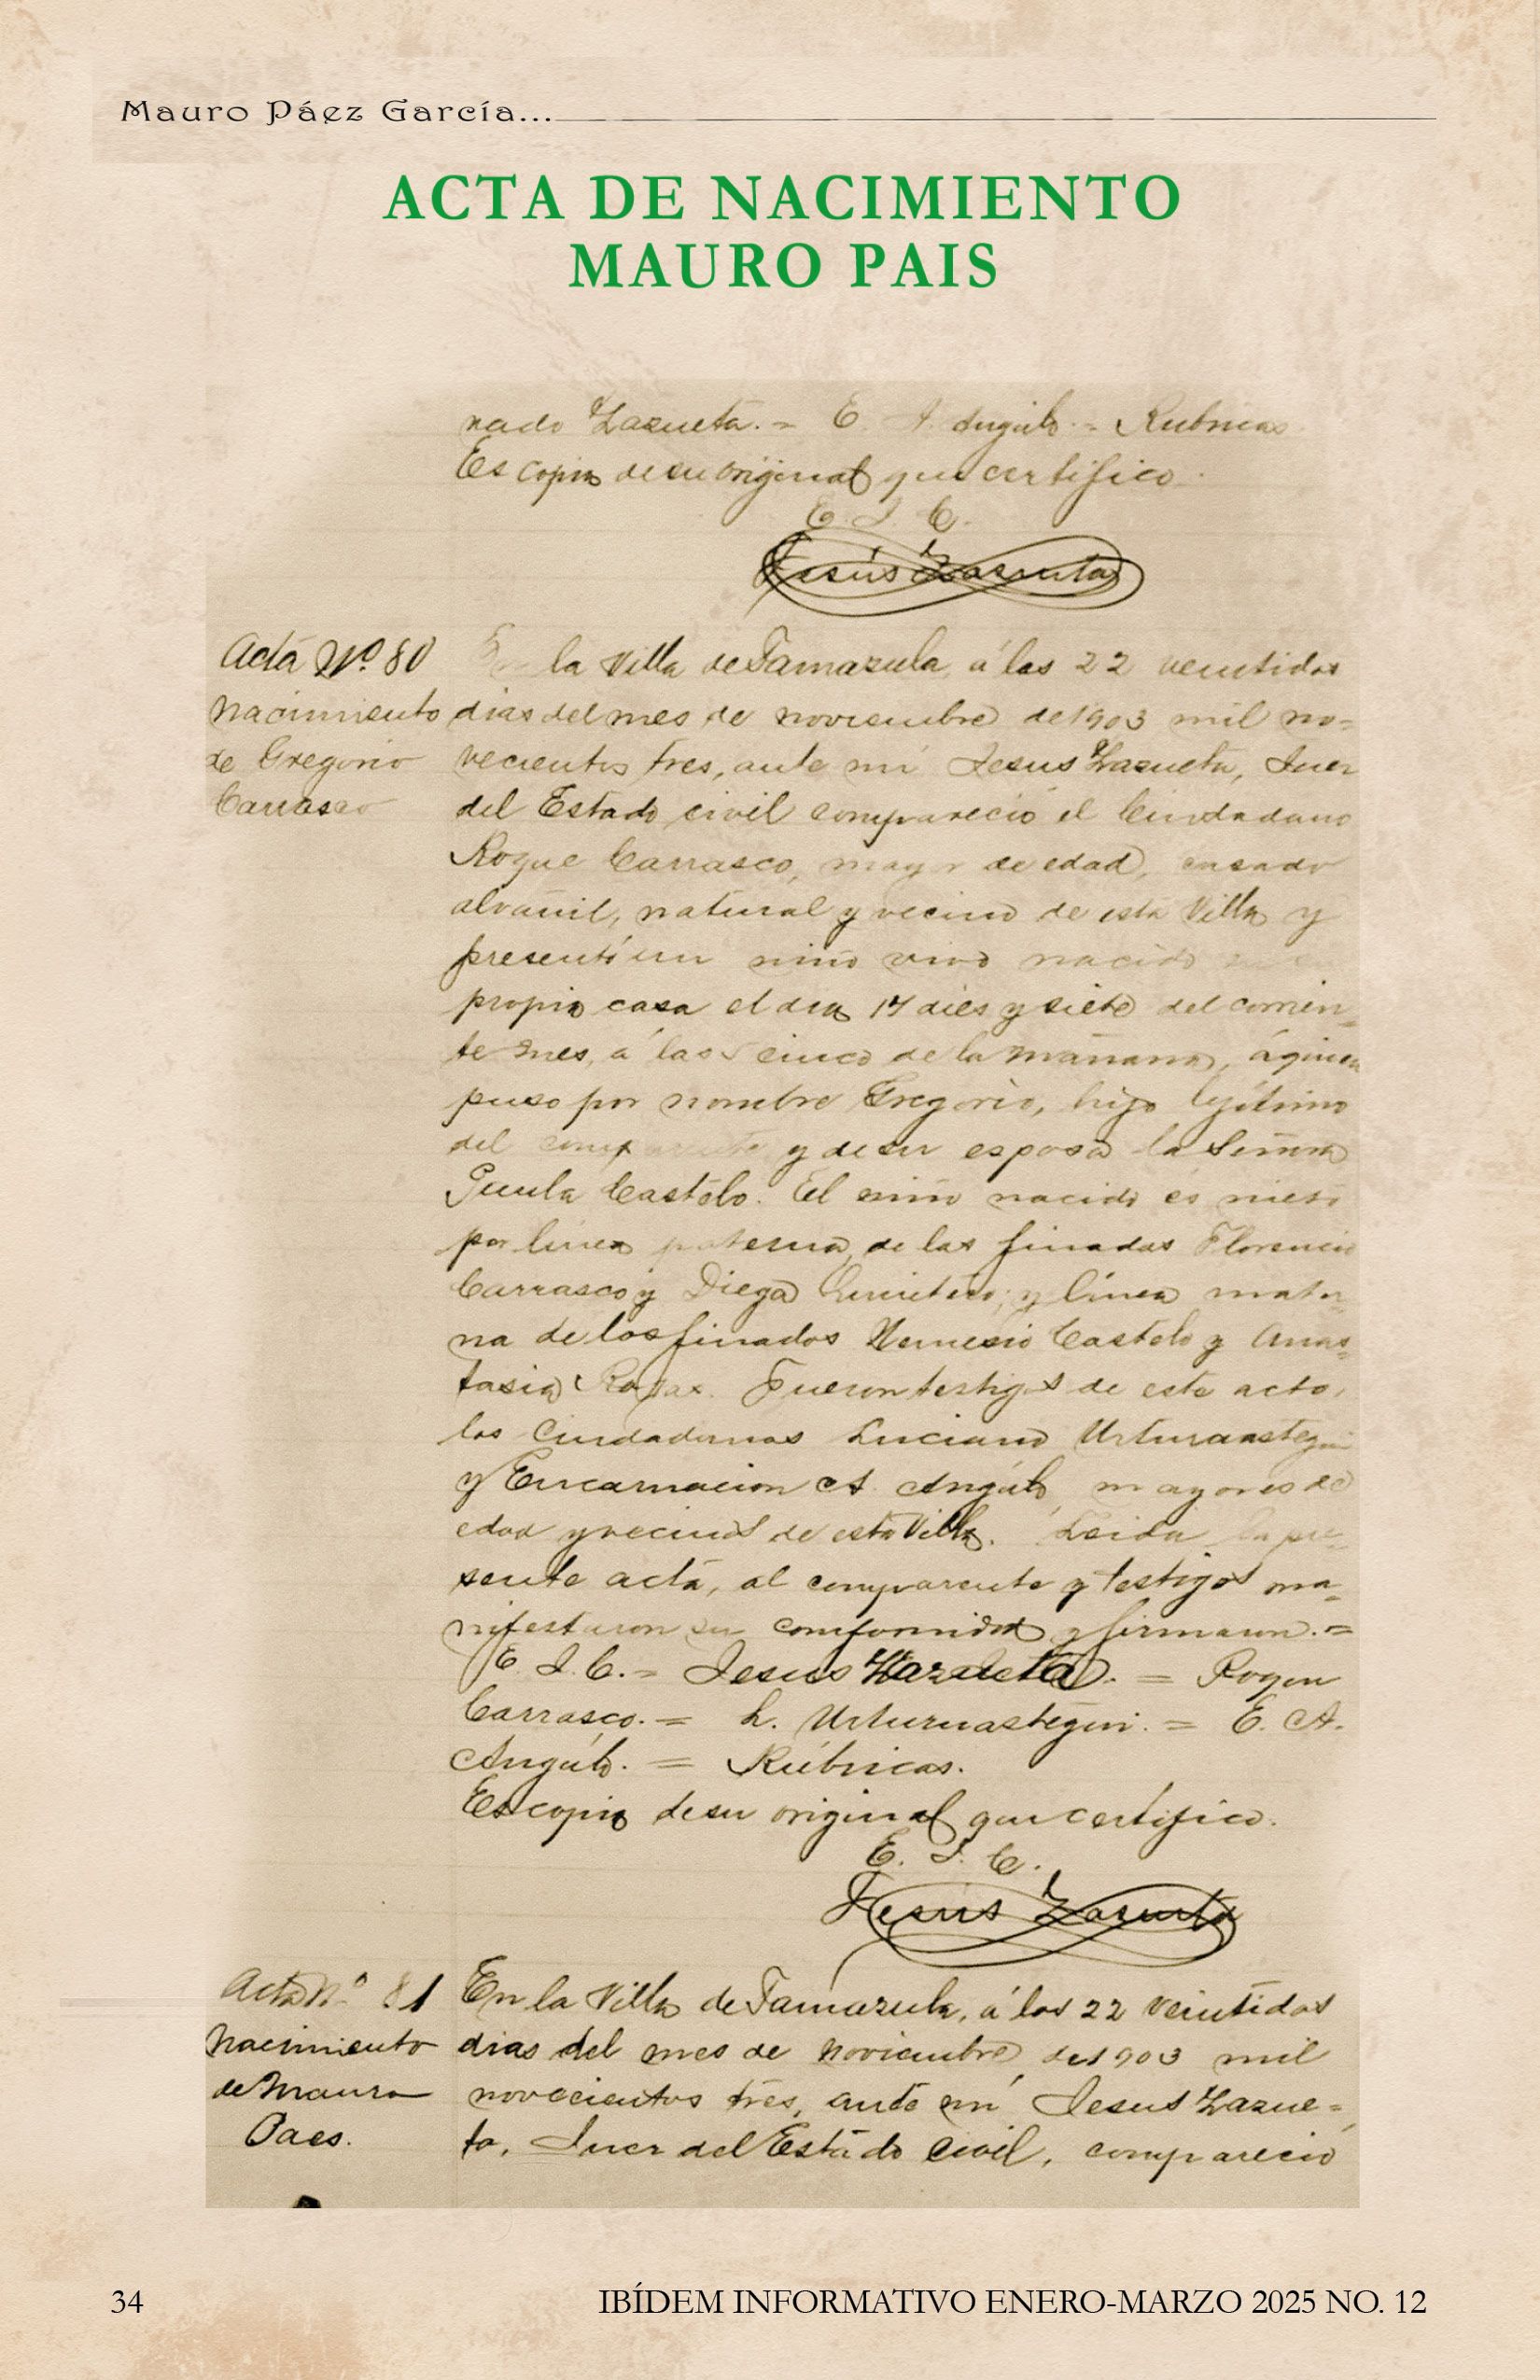 Mauro Páez García...
ACTA DE NACIMIENTO
MAURO PAIS
nado Zazueta. = E. A. Angúlo. = Rubricas
Es copia de su original que certifico.
E. J. C.
Jesús Zazueta
Acta Nº. 80
Nacimiento
de Gregorio
Carrasco
En la Villa de Tamazula, á los 22 veintidos
dias del mes de noviembre de 1903 mil no=
vecientos tres, ante mí Jesus Zazueta, Juez
del Estado civil compareció el Ciudadano
Roque Carrasco, mayor de edad, casado
alvañil, natural y vecino de esta Villa y
presentó un niño vivo nacido en
propia casa el dia 17 dies y siete del corrien=
te mes, á las 5 cinco de la mañana, á quien
puso por nombre Gregorio, hijo legítimo
del compareciente y de su esposa la Señora
Paula Castélo. El niño nacido es nieto
por línea paterna, de los finados Florencio
Carrasco y Diega Quintero; y línea mater=
na de los finados Nemesio Castelo y Anas=
tasia Rojas. Fueron testigos de este acto,
los Ciudadanos Luciano Urtuzuastegui
y Encarnacion A. Angúlo, mayores de
edad y vecinos de esta Villa. Leida la pre=
sente acta, al compareciente y testigos ma=
nifestaron su conformidad y firmaron. =
E. J. C. = Jesus Zazueta. = Roque
Carrasco. = L. Urtuzuastegui. = E. A.
Angúlo. = Rúbricas.
Es copia de su original que certifico.
E. J. C.
Jesús Zazueta
Acta Nº. 81
Nacimiento
de Mauro
Paes.
En la Villa de Tamazula, á los 22 veintidos
dias del mes de Noviembre de 1903 mil
novecientos tres, ante mí Jesus Zazue=
ta, Juez del Estado Civil, compareció
34
IBÍDEM INFORMATIVO ENERO-MARZO 2025 NO. 12